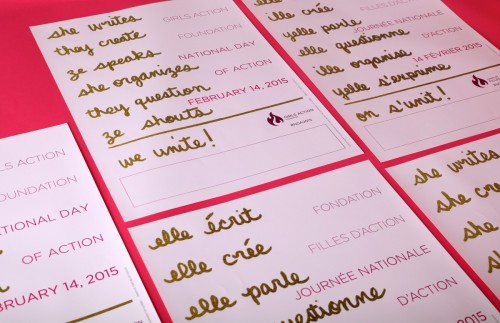 she writes
GIRLS ACTION
they create
FOUNDATION
ze speaks
NATIONAL DAY
she organizes
OF ACTION
they question
FEBRUARY 14, 2015
ze shouts
we unite!
GIRLS ACTION
elle crée
FONDATION
yelle parle
FILLES D'ACTION
elle questionne
JOURNÉE NATIONALE
ille organise
D'ACTION
yelle s'exprime
14 FÉVRIER 2015
on s'unit!
GIRLS ACTION
FOUNDATION
NATIONAL DAY
OF ACTION
FEBRUARY 14, 2015
elle écrit
FONDATION
elle crée
FILLES D'ACTION
elle parle
JOURNÉE NATIONALE
questionne
D'ACTION
she writes
she
she